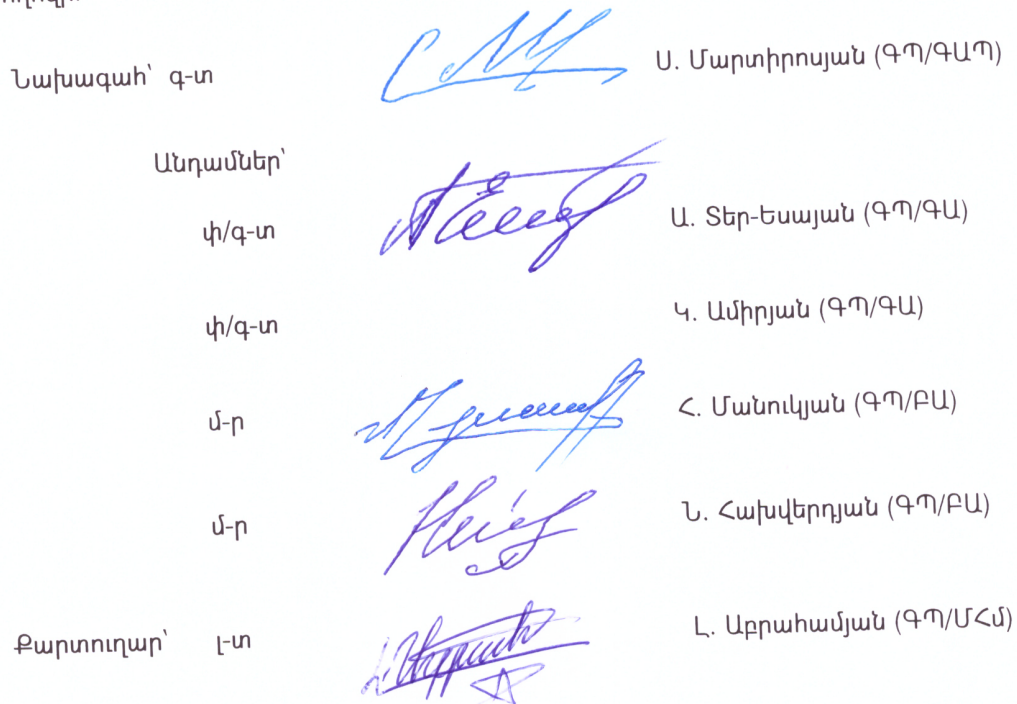 Նախագահ՝ գ-տ Ս. Մարտիրոսյան (ԳՊ/ԳԱՊ)
Անդամներ՝
փ/գ-տ Ա. Տեր-Եսայան (ԳՊ/ԳԱ)
փ/գ-տ Կ. Ամիրյան (ԳՊ/ԳԱ)
մ-ր Հ. Մանուկյան (ԳՊ/ԲԱ)
մ-ր Ն. Հախվերդյան (ԳՊ/ԲԱ)
Քարտուղար՝ լ-տ Լ. Աբրահամյան (ԳՊ/ՄՀմ)